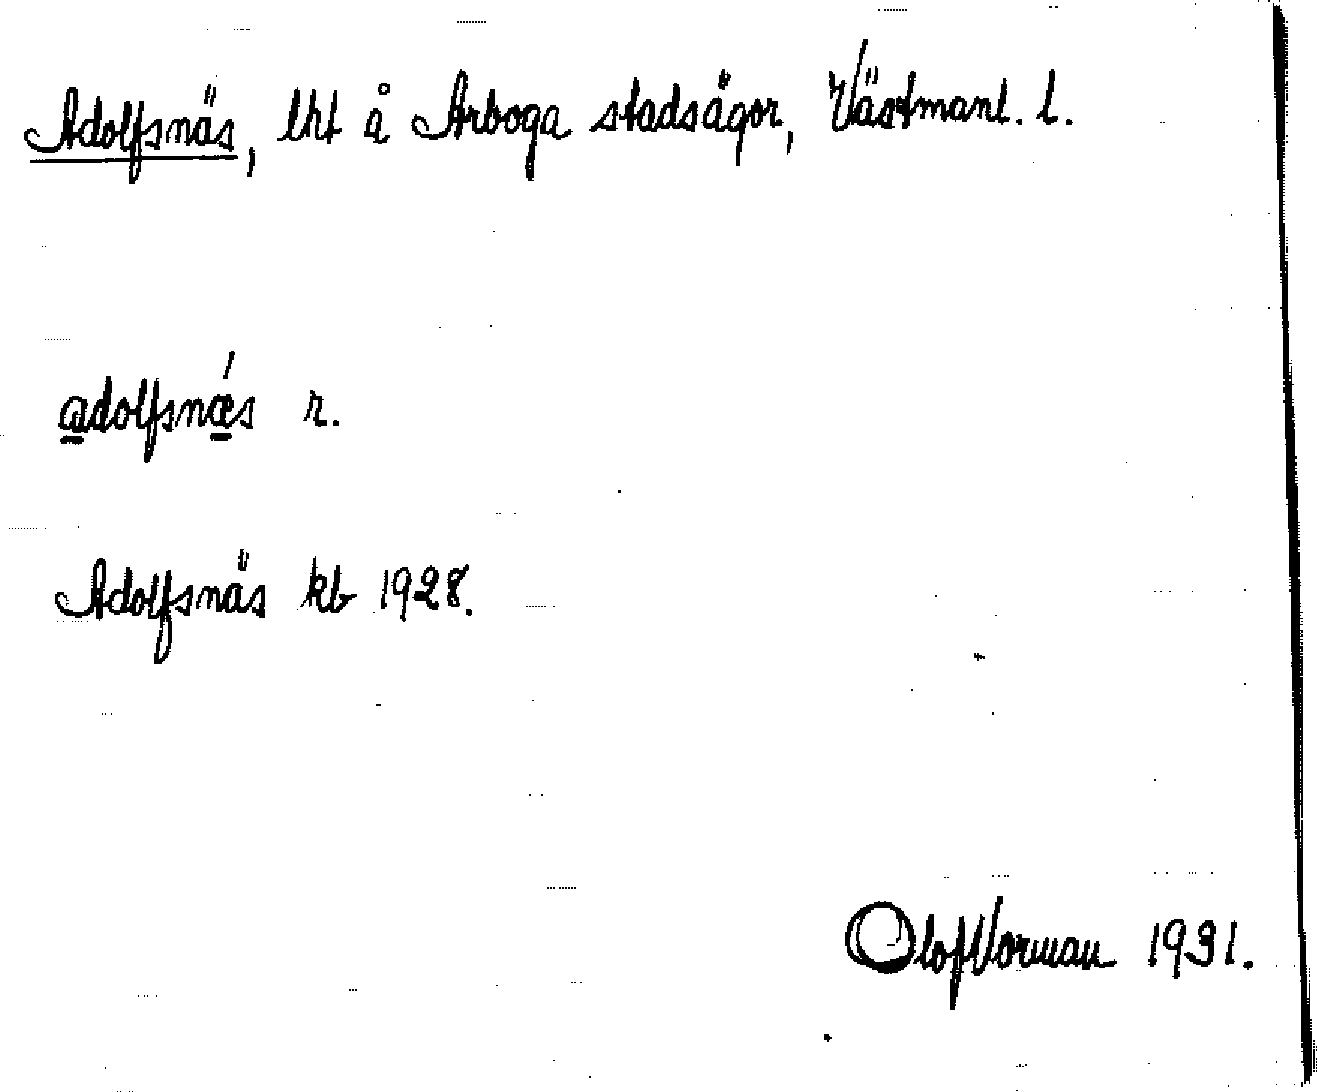 Adolfsnäs, lht å Arboga stadsägor, Västmanl. l.
adolfsnǽs r.
Adolfsnäs kb 1928.
Olof Norman 1931.